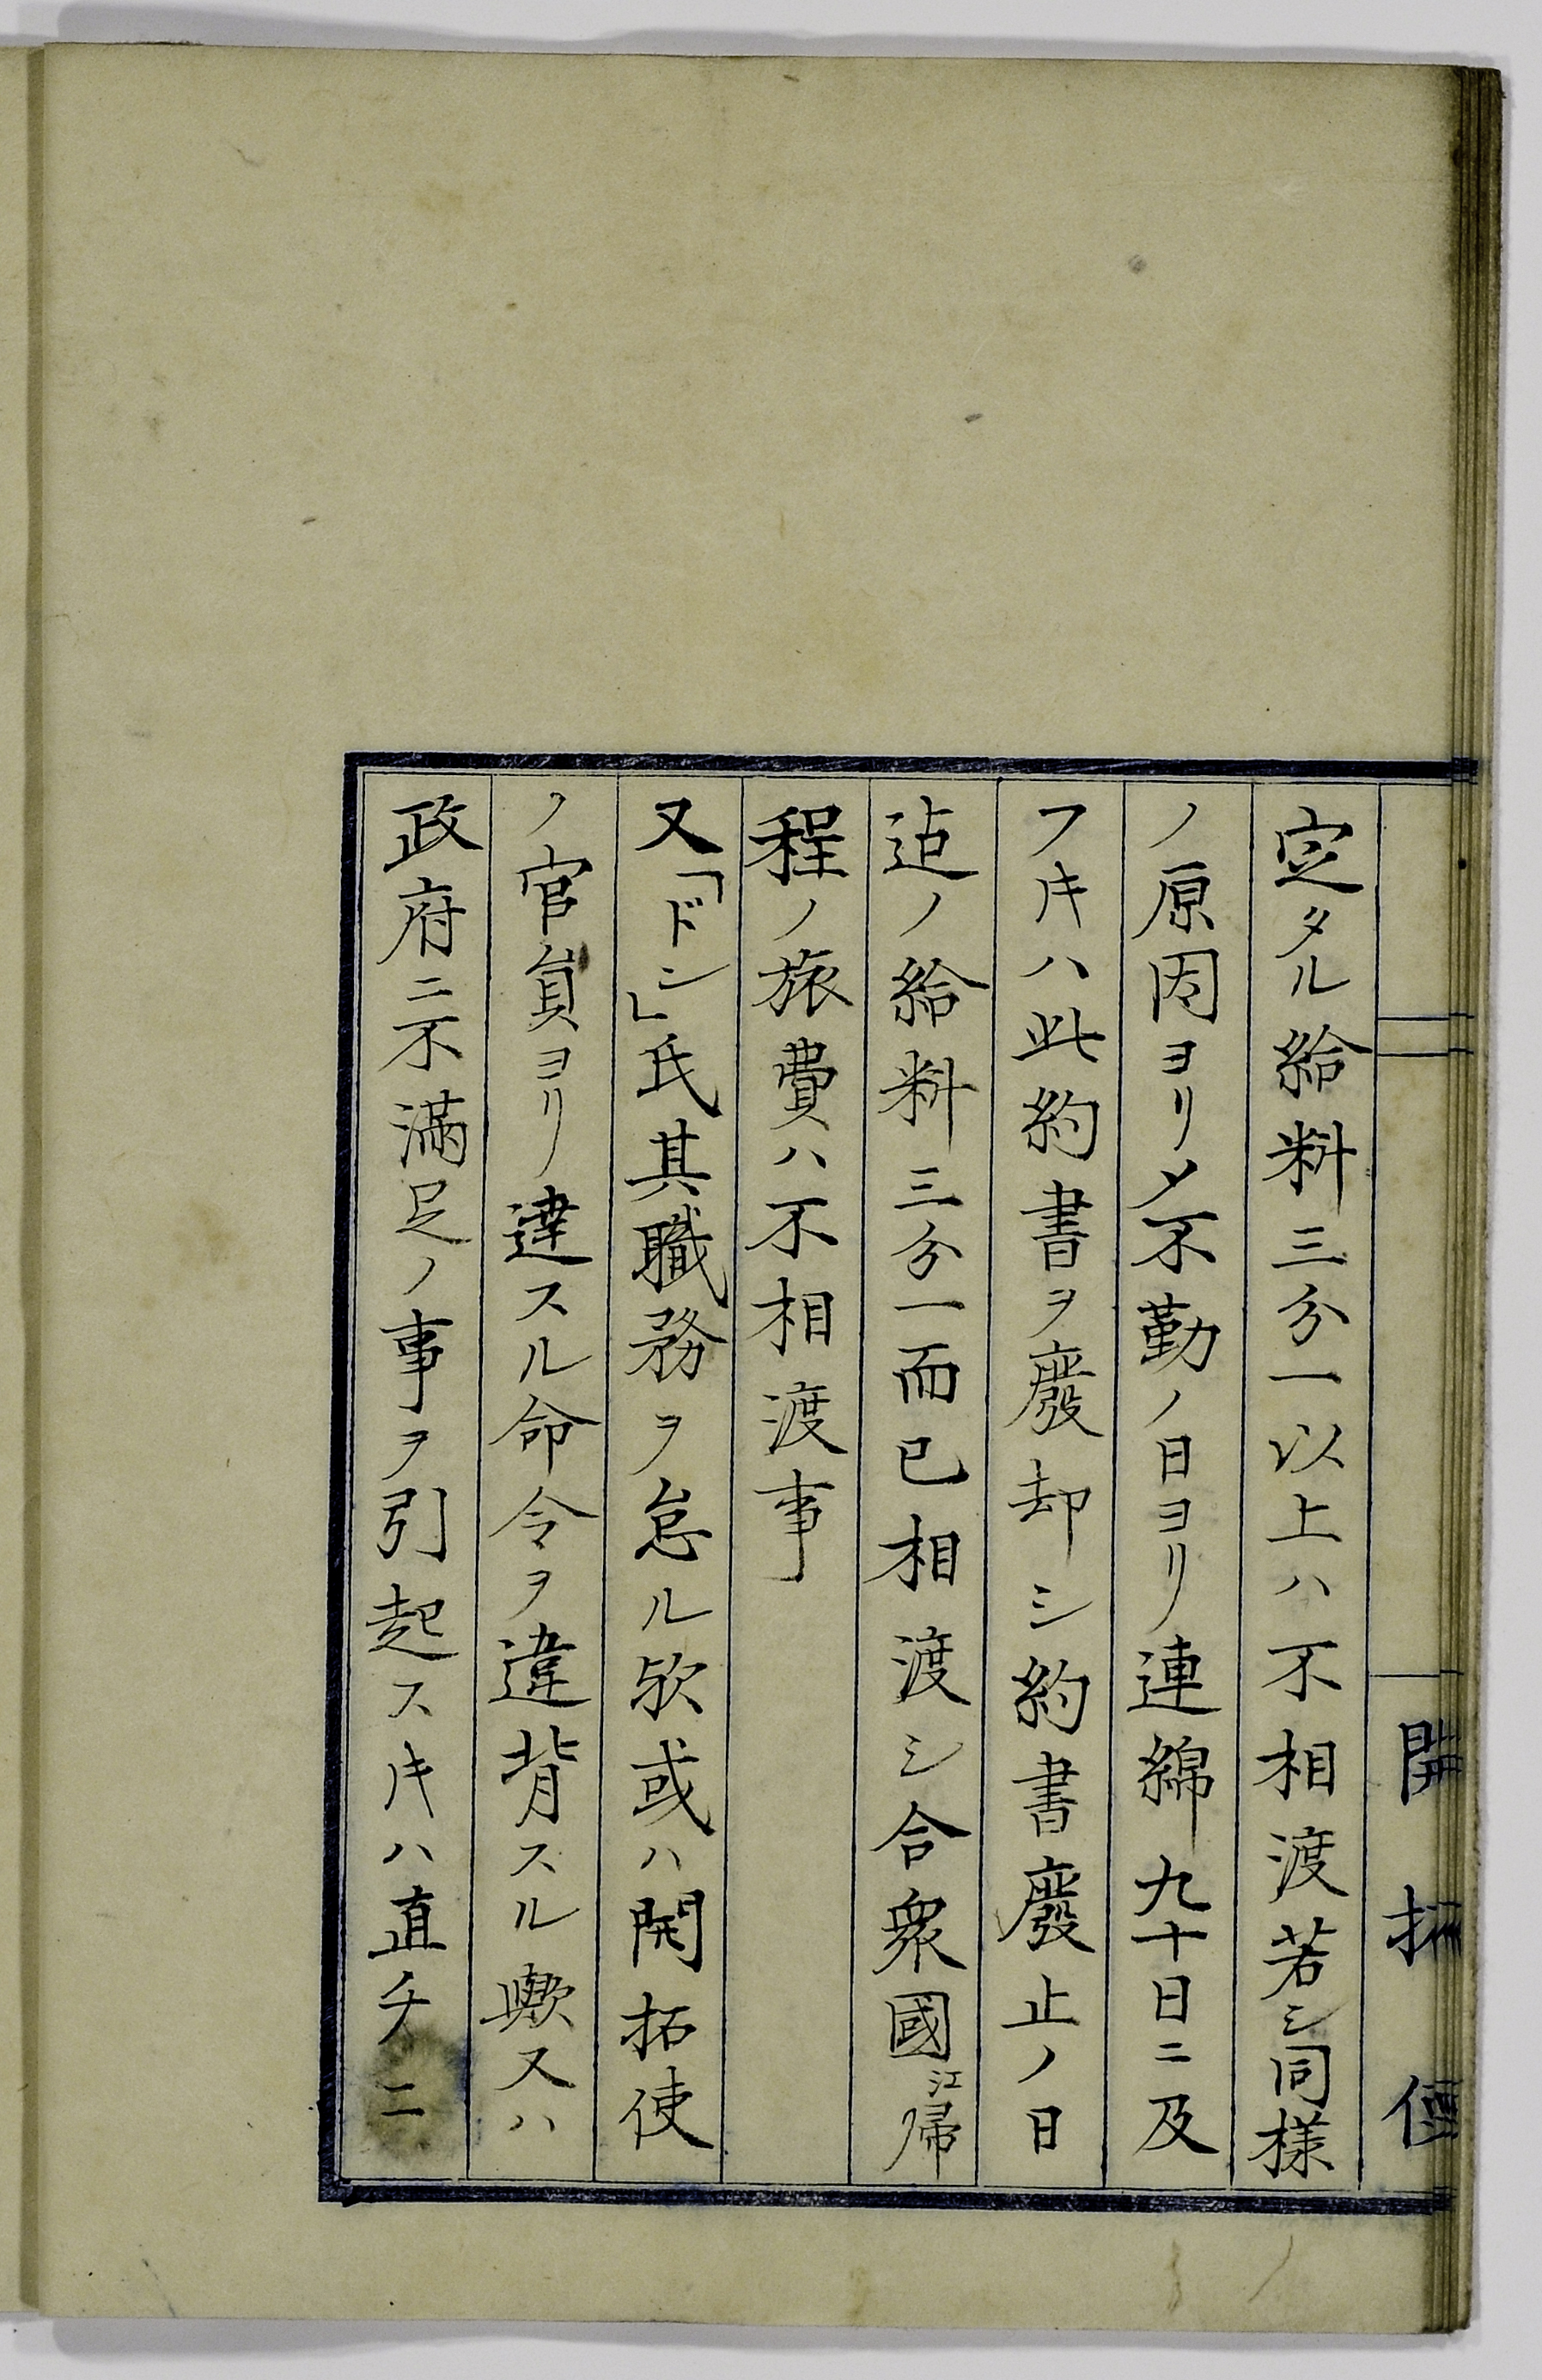 開拓使
定タル給料三分一以上ハ不相渡若シ同様
ノ原因ヨリメ不勤ノ日ヨリ連綿九十日ニ及
フ𪜈ハ此約書ヲ廢却シ約書廢止ノ日
迠ノ給料三分一而已相渡シ合衆國江歸
程ノ旅費ハ不相渡事
又「ドン」氏其職務ヲ怠ル欤或ハ開拓使
ノ官員ヨリ達スル命令ヲ違背スル歟又ハ
政府ニ不満足ノ事ヲ引起スキハ直チニ